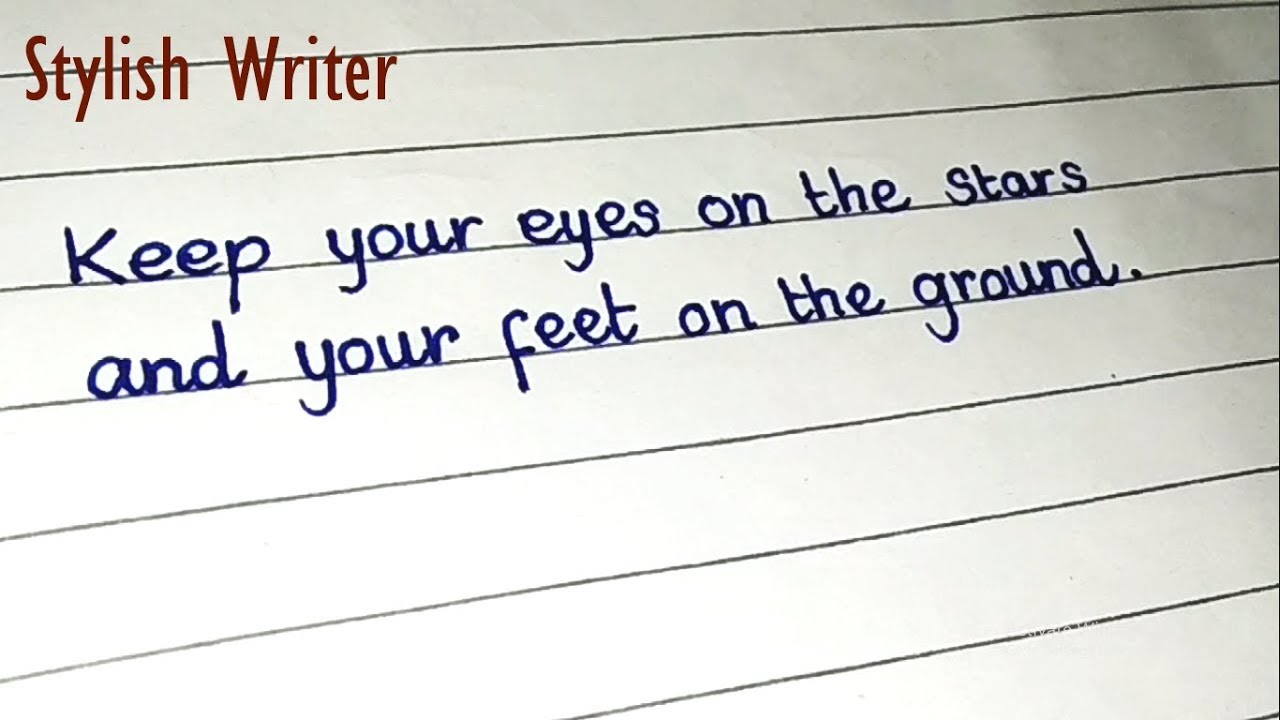 Stylish Writer
Keep your eyes on the stars
and your feet on the ground.